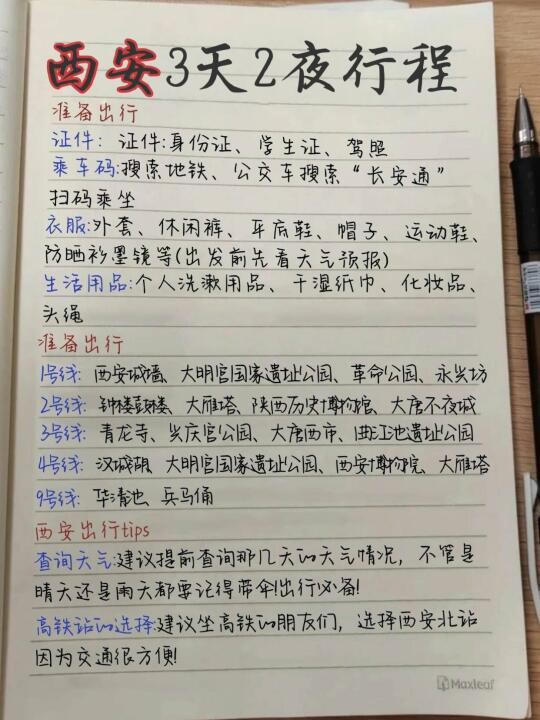 西安3天2夜行程
准备出行
证件: 证件:身份证、学生证、驾照
乘车码:搜索地铁、公交车搜索“长安通”
扫码乘坐
衣服:外套、休闲裤、平底鞋、帽子、运动鞋、
防晒衫墨镜等(出发前先看天气预报)
生活用品:个人洗漱用品、干湿纸巾、化妆品、
头绳
准备出行
1号线: 西安城墙、大明宫国家遗址公园、革命公园、永兴坊
2号线: 钟楼鼓楼、大雁塔、陕西历史博物馆、大唐不夜城
3号线: 青龙寺、兴庆宫公园、大唐西市、曲江池遗址公园
4号线: 汉城湖、大明宫国家遗址公园、西安博物院、大雁塔
9号线: 华清池、兵马俑
西安出行tips
查询天气:建议提前查询那几天的天气情况，不管是
晴天还是雨天都要记得带伞!出行必备!
高铁站的选择:建议坐高铁的朋友们，选择西安北站
因为交通很方便!
Maxleaf